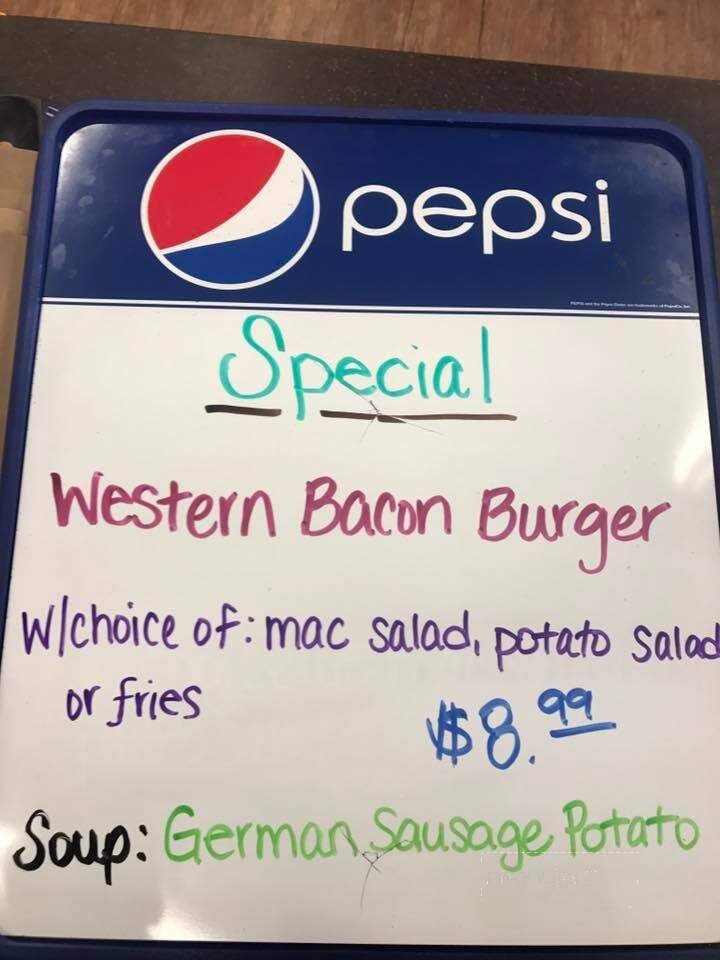 pepsi
Special
Western Bacon Burger
W/choice of: mac salad, potato salad
or fries
$8.99
Soup: German Sausage Potato